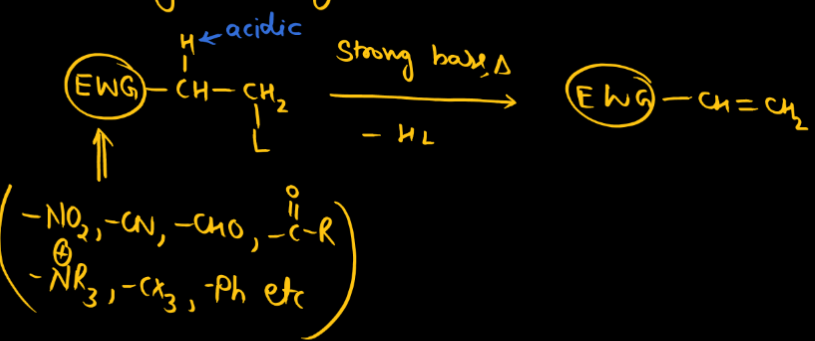 H ← acidic
EWG–CH–CH₂ Strong base, Δ EWG–CH=CH₂
L – HL
O
(–NO₂, –CN, –CHO, –C–R
⊕
–NR₃, –CX₃, –Ph etc)